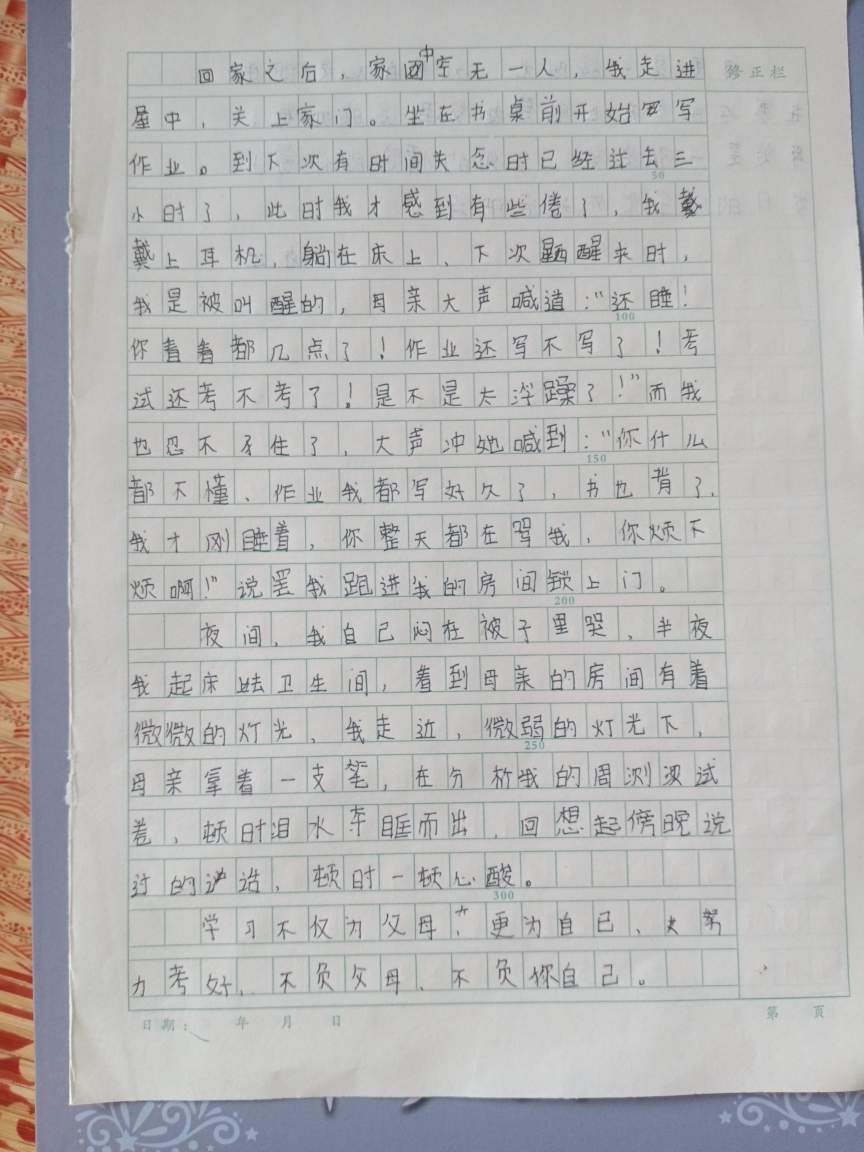 回家之后，家中空无一人，我走进
修正栏
屋中，关上家门。坐在书桌前开始写
作业。到下次有时间失念时已经过去三
50
小时了，此时我才感到有些倦了，我
戴上耳机，躺在床上、下次醒来时，
我是被叫醒的，母亲大声喊道："还睡！
100
你看看都几点了！作业还写不写了！考
试还考不考了！是不是太浮躁了！"而我
也忍不住了，大声冲她喊到："你什么
150
都不懂、作业我都写好久了，书也背了，
我才刚睡着，你整天都在骂我，你烦不
烦啊！"说罢我跑进我的房间锁上门。
200
夜间，我自己闷在被子里哭，半夜
我起床去卫生间，看到母亲的房间有着
微微的灯光、我走近，微弱的灯光下，
250
母亲拿着一支笔，在分析我的周测试
卷，顿时泪水夺眶而出，回想起傍晚说
过的话，顿时一顿心酸。
300
学习不仅为父母，更为自己、努
力考好，不负父母、不负你自己。
日期： 年 月 日
第 页